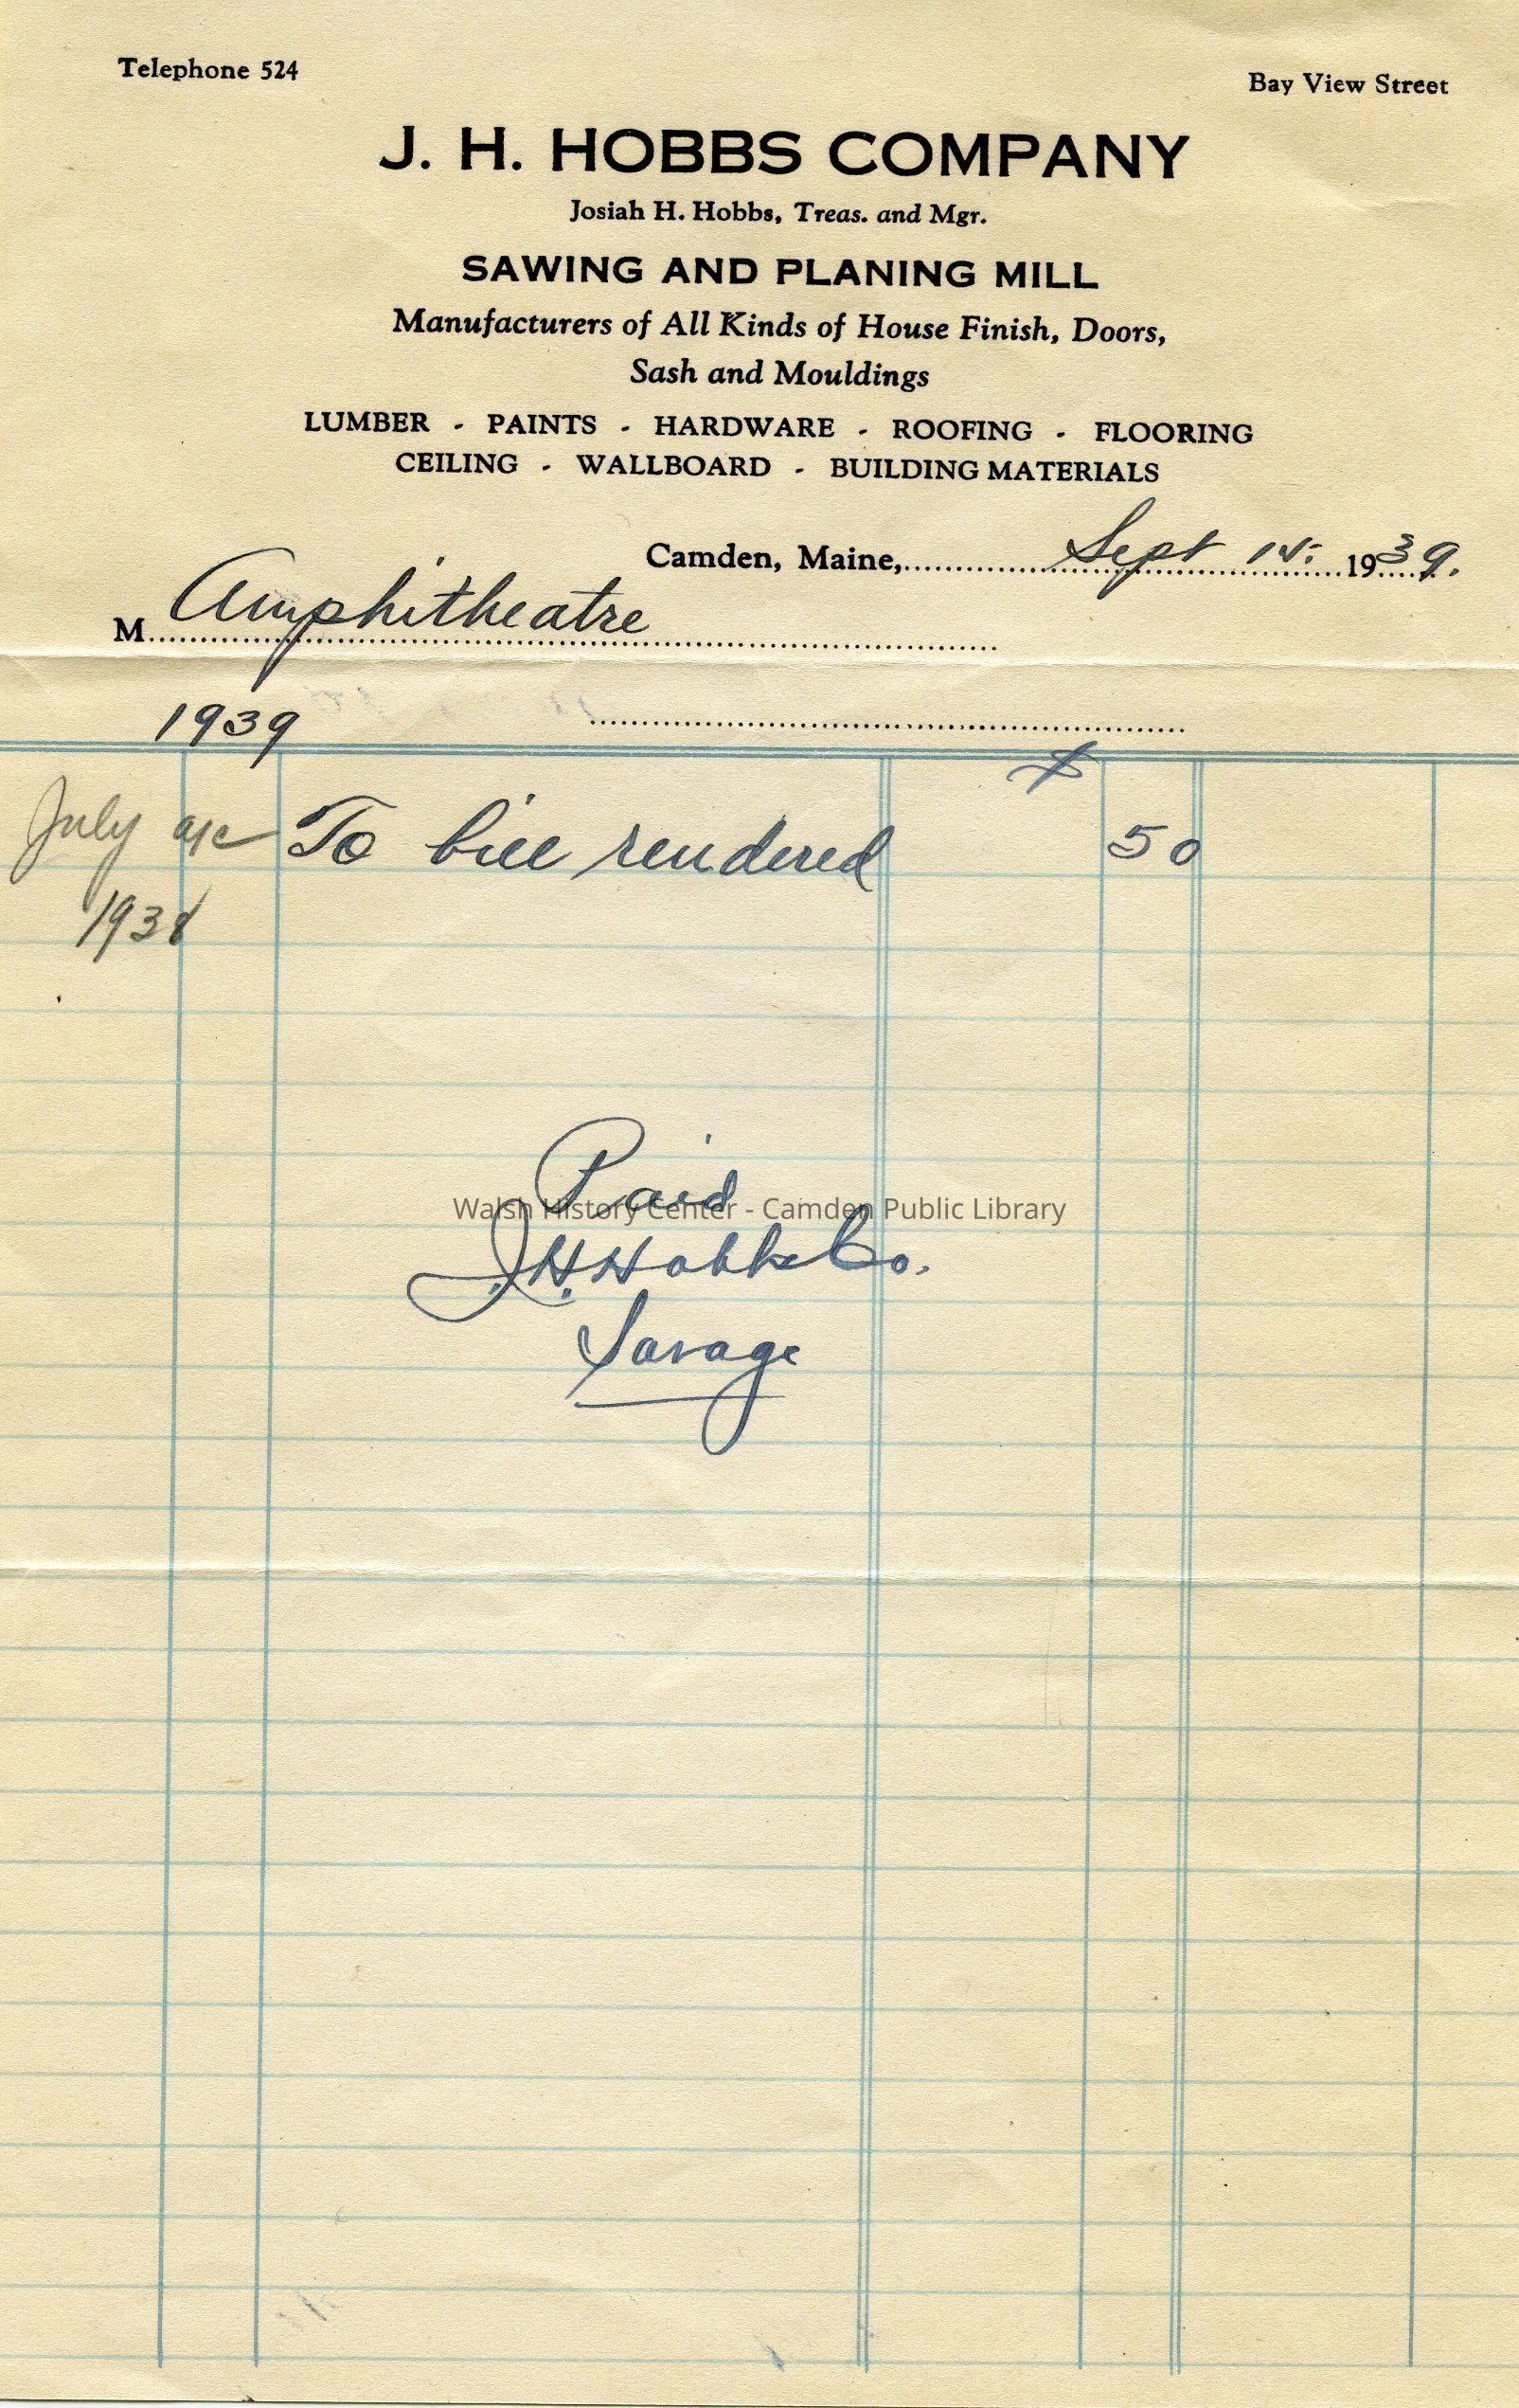 Telephone 524
Bay View Street
J. H. HOBBS COMPANY
Josiah H. Hobbs, Treas. and Mgr.
SAWING AND PLANING MILL
Manufacturers of All Kinds of House Finish, Doors,
Sash and Mouldings
LUMBER - PAINTS - HARDWARE - ROOFING - FLOORING
CEILING - WALLBOARD - BUILDING MATERIALS
Camden, Maine, Sept 1939.
M Amphitheatre
1939
July a/c To bill rendered 50
1938
Paid
Walsh History Center - Camden Public Library
J.H. Hobbs Co.
Savage